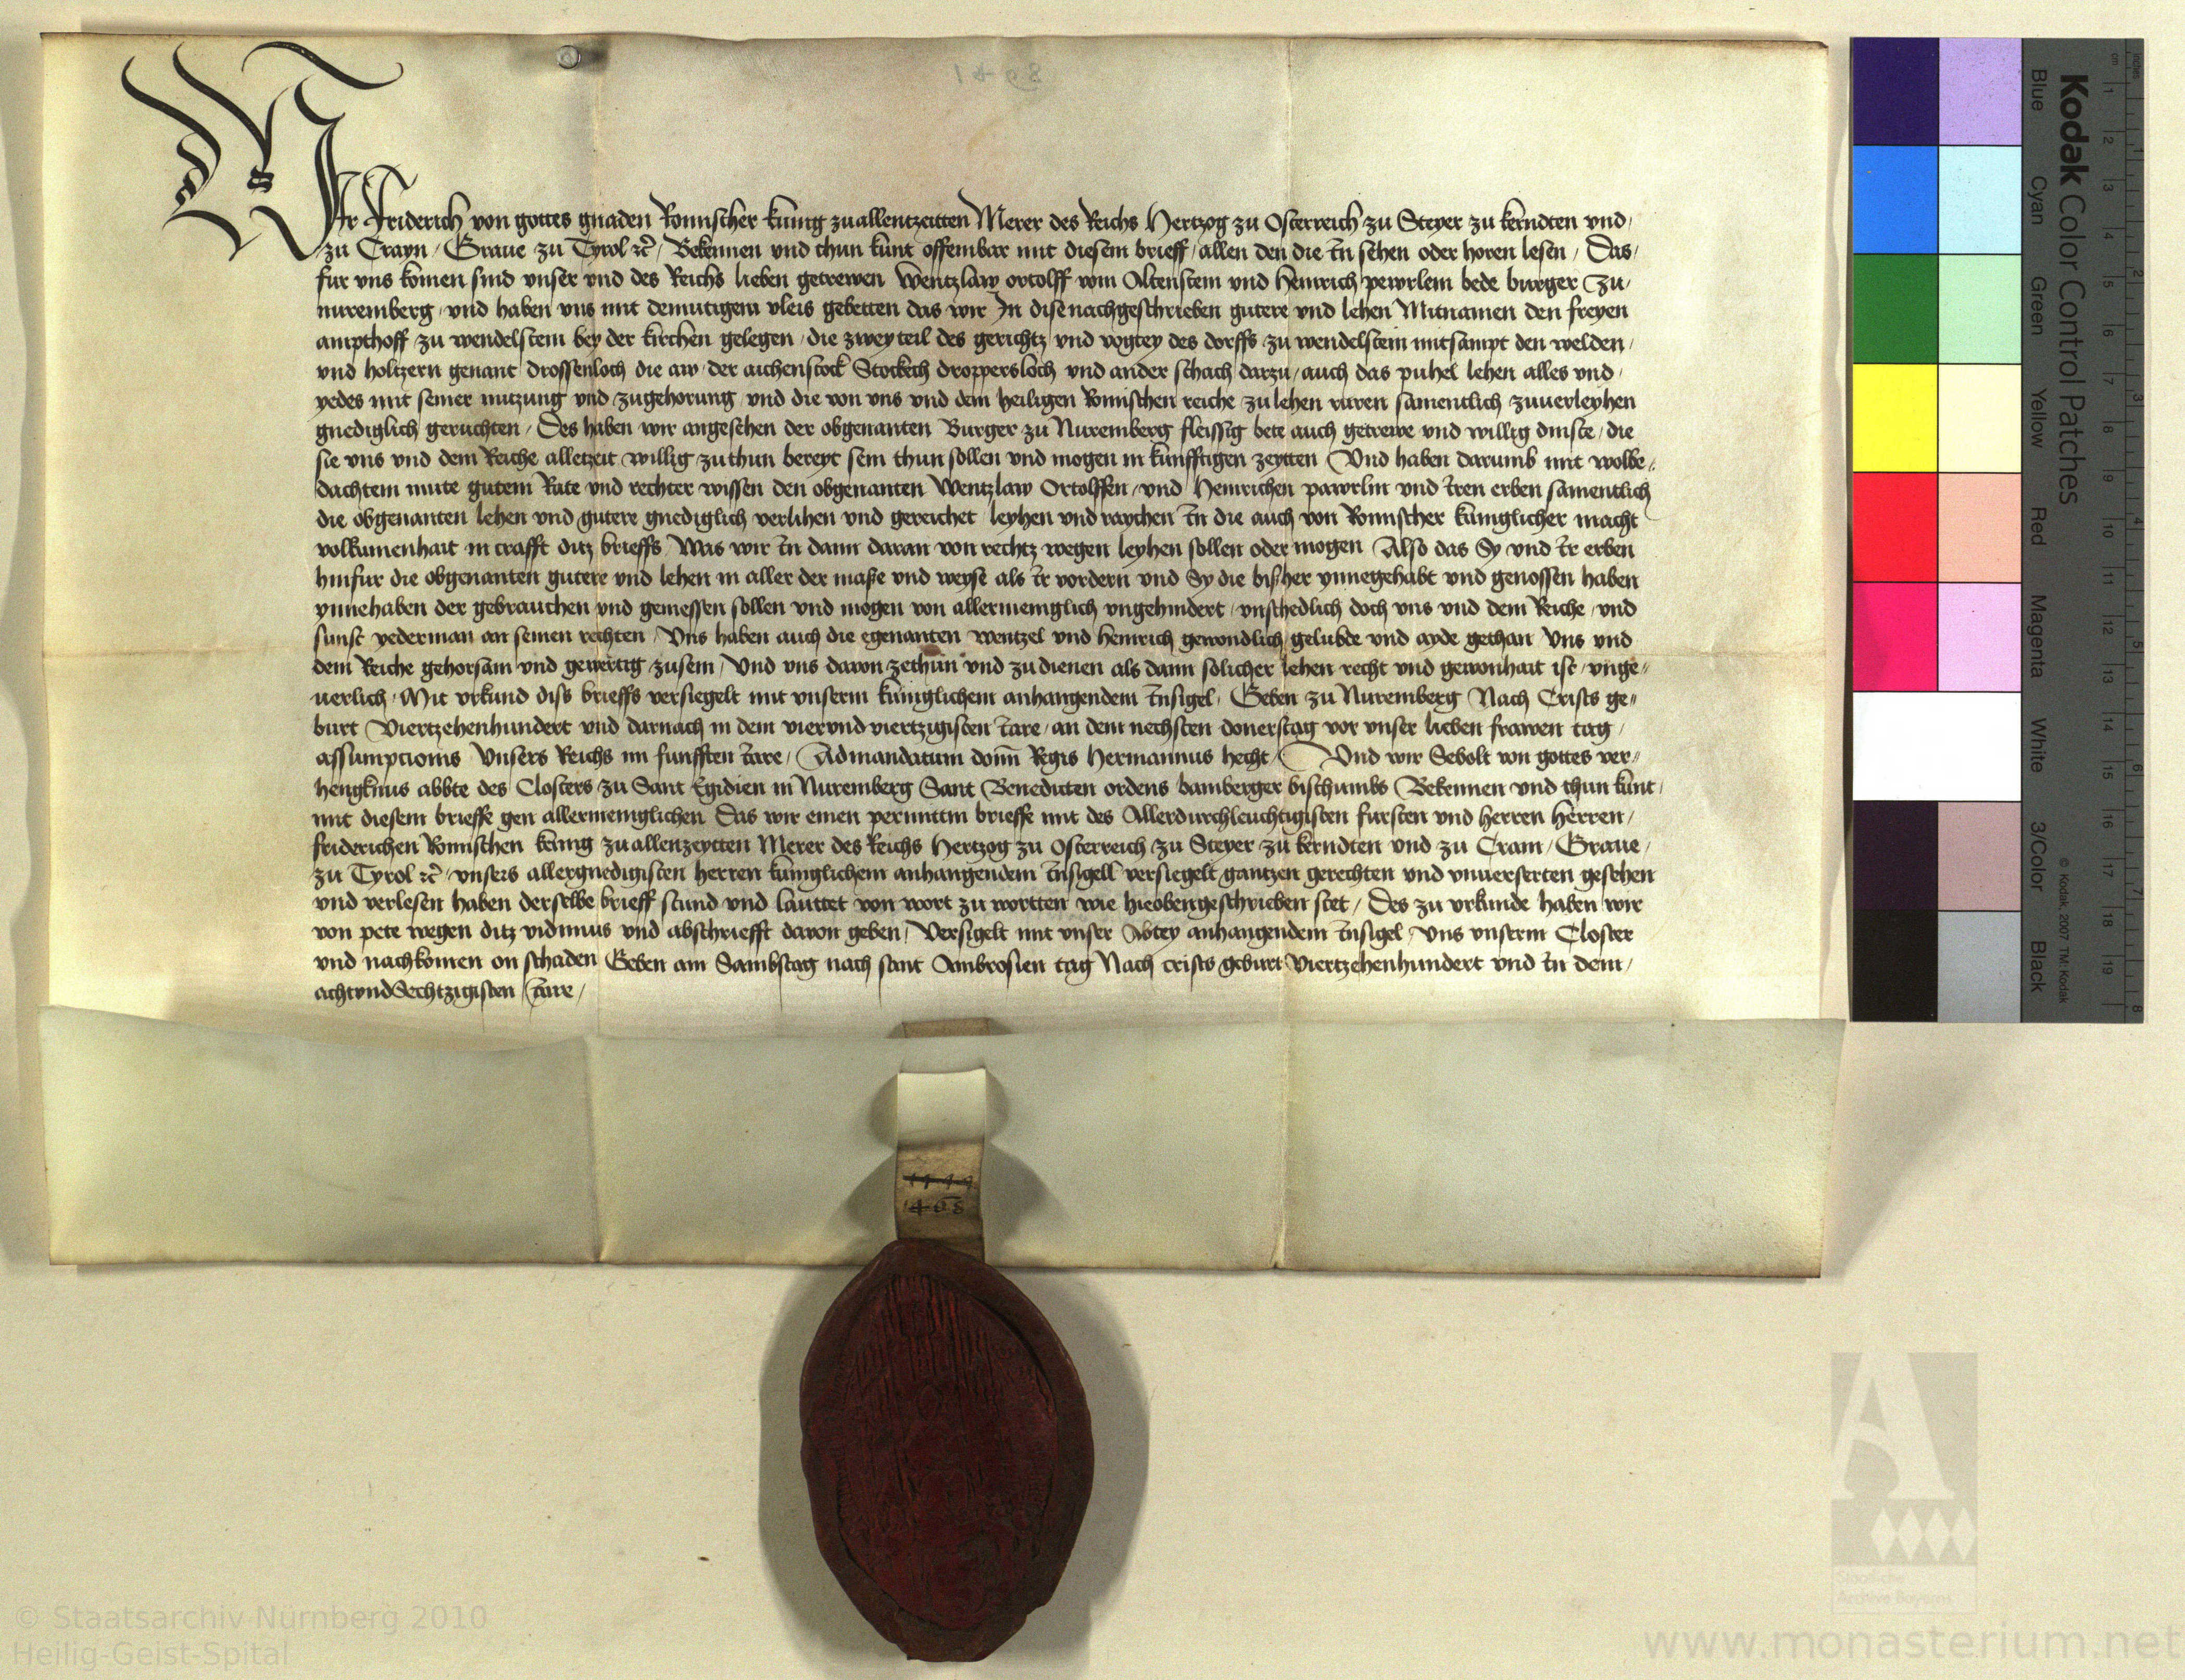 Wir Friderich von gottes gnaden Romischer kunig zuallentzeitten Merer des Reichs Hertzog zu Osterreich zu Steyer zu kerndten vnd
zu Crayn / Graue zu Tyrol ꝛc̄ / Bekennen vnd thun kunt offembar mit diesem brieff / allen den die Im sehen oder horen lesen / Das
fur vns komen sind vnser vnd des Reichs lieben getrewen Wentzlaw ortolff vom Altenstein vnd Heinrich pewrlem bede burger Zu
nuremberg vnd haben vns mit demutigem vleis gebetten das wir In dise nachgeschrieben gutere vnd lehen Mitnamen den freyen
ampthoff zu wendelstein bey der kirchen gelegen / die zwey teil des gerichtz vnd vogtey des dorffs zu wendelstein mitsampt den welden
vnd holtzern genant drossenloch die aw / der aichenstock Stockech droppersloch vnd ander schach darzu / auch das puhel lehen alles vnd
yedes mit seiner nutzung vnd zugehorung vnd die von vns vnd dem heiligen Romischen reiche zu lehen ruren samentlich zuuerleyhen
gnediglich geruchten / Des haben wir angesehen der obgenanten Burger zu Nuremberg fleissig bete auch getrewe vnd willig dinste / die
sie vns vnd dem Reiche alletzeit willig zuthun bereyt sein thun sollen vnd mogen in kunfftigen zeytten Vnd haben darumb mit wolbe„
dachtem mute gutem Rate vnd rechter wissen den obgenanten Wentzlaw Ortolffen / vnd Heinrichen pawrlin vnd iren erben samentlich
die obgenanten lehen vnd gutere gnediglich verlihen vnd gereichet leyhen vnd raychen In die auch von Romischer kuniglicher macht
volkumenhait in crafft ditz brieffs Was wir In dann daran von rechtz wegen leyhen sollen oder mogen Also das Sy vnd Ir erben
hinfur die obgenanten gutere vnd lehen in aller der maße vnd weyse als Ir vordern vnd Sy die bisher ynnegehabt vnd genossen haben
ynnehaben der gebrauchen vnd geniessen sollen vnd mogen von allermeniglich vngehindert / vnschedlich doch vns vnd dem Reiche / vnd
sunst yederman an seinen rechten / Vns haben auch die egenanten wentzel vnd heinrich gewondlich gelubde vnd ayde gethan Vns vnd
dem Reiche gehorsam vnd gewertig zusein / Vnd vns dauon zethun vnd zu dienen als dann solicher lehen recht vnd gewonhait ist / vnge„
uerlich / Mit vrkund diss brieffs versiegelt mit vnserm kuniglichem anhangendem Insigel / Geben zu Nuremberg Nach Crists ge„
burt Viertzehenhundert vnd darnach in dem viervnd viertzigisten Iare / an dem nechsten donerstag vor vnser lieben frawen tag
assumpcionis Vnsers Reichs im funfften Iare / Ad mandatum domi Regis Hermannus hecht / Vnd wir Sebolt von gottes ver„
hengknus abbte des Closters zu Sant Egidien in Nuremberg Sant Benedicten ordens bamberger bischumbs Bekennen vnd thun kunt
mit diesem brieffe gen allermeniglichen Das wir einen permittin brieffe mit des Allerdurchleuchtigisten fursten vnd herren Herren
friderichen Romischen kung zu allenzeytten Merer des Reichs Hertzog zu Osterreich zu Steyer zu kerndten vnd zu Crain / Graue
zu Tyrol ꝛc̄ / vnsers allergnedigisten herren kuniglichem anhangendem Insigell versiegelt gantzen gerechten vnd vnuerserten gesehen
vnd verlesen haben derselbe brieff stund vnd lauttet von wort zu wortten wie hieobengeschrieben stet / Des zu vrkunde haben wir
von pete wegen ditz vidimus vnd abschriefft dauon geben / Versigelt mit vnser Abtey anhangendem Insigel / Vns vnserm Closter
vnd nachkomen on schaden Geben am Sambstag nach sant Ambrosien tag Nach crists geburt Viertzehenhundert vnd In dem
achtvndSechtzigisten Iare /
1444
1468
Kodak Color Control Patches
Blue Cyan Green Yellow Red Magenta White 3/Color Black
© Kodak, 2007 TM: Kodak
© Staatsarchiv Nürnberg 2010
Heilig-Geist-Spital
Staatliche
Archive Bayerns
www.monasterium.net